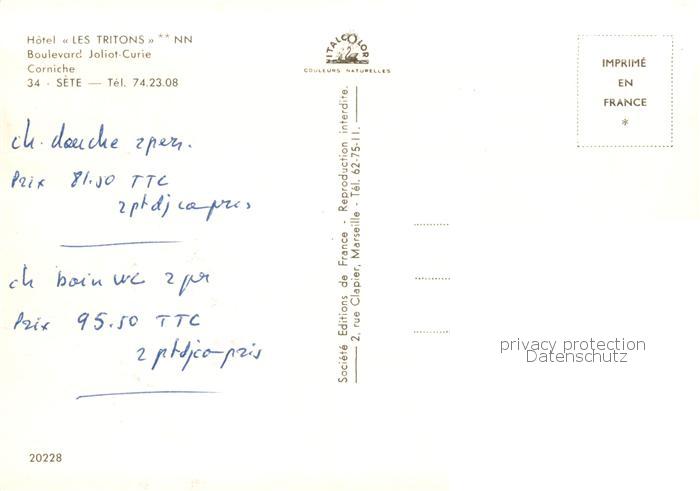 Hôtel « LES TRITONS » ** NN
Boulevard Joliot-Curie
Corniche
34 - SÈTE — Tél. 74.23.08
ch. douche 2 pers.
Prix 81.50 TTC
2 ptdj compris
ch bain wc 2 pr
Prix 95.50 TTC
2 ptdj compris
20228
ITALCOLOR
COULEURS NATURELLES
Société Editions de France - Reproduction interdite.
2, rue Clapier, Marseille - Tél. 62-75-11.
IMPRIMÉ
EN
FRANCE
*
privacy protection
Datenschutz